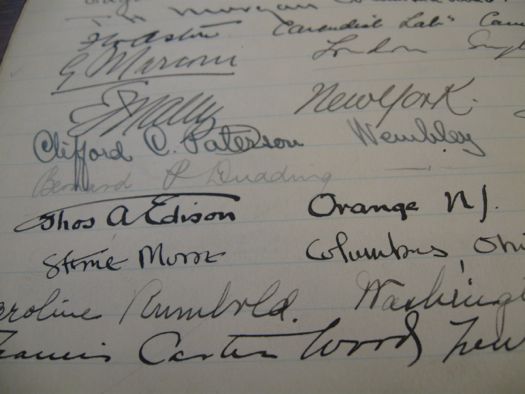 Morgan
Aston Cavendish Lab. Cam
G Marconi London Eng
New York.
Clifford C. Paterson Wembley
Bernard P
Thos A Edison Orange NJ.
Columbus, Ohi
aroline Rumbold. Washingt
rancis Carter Wood New